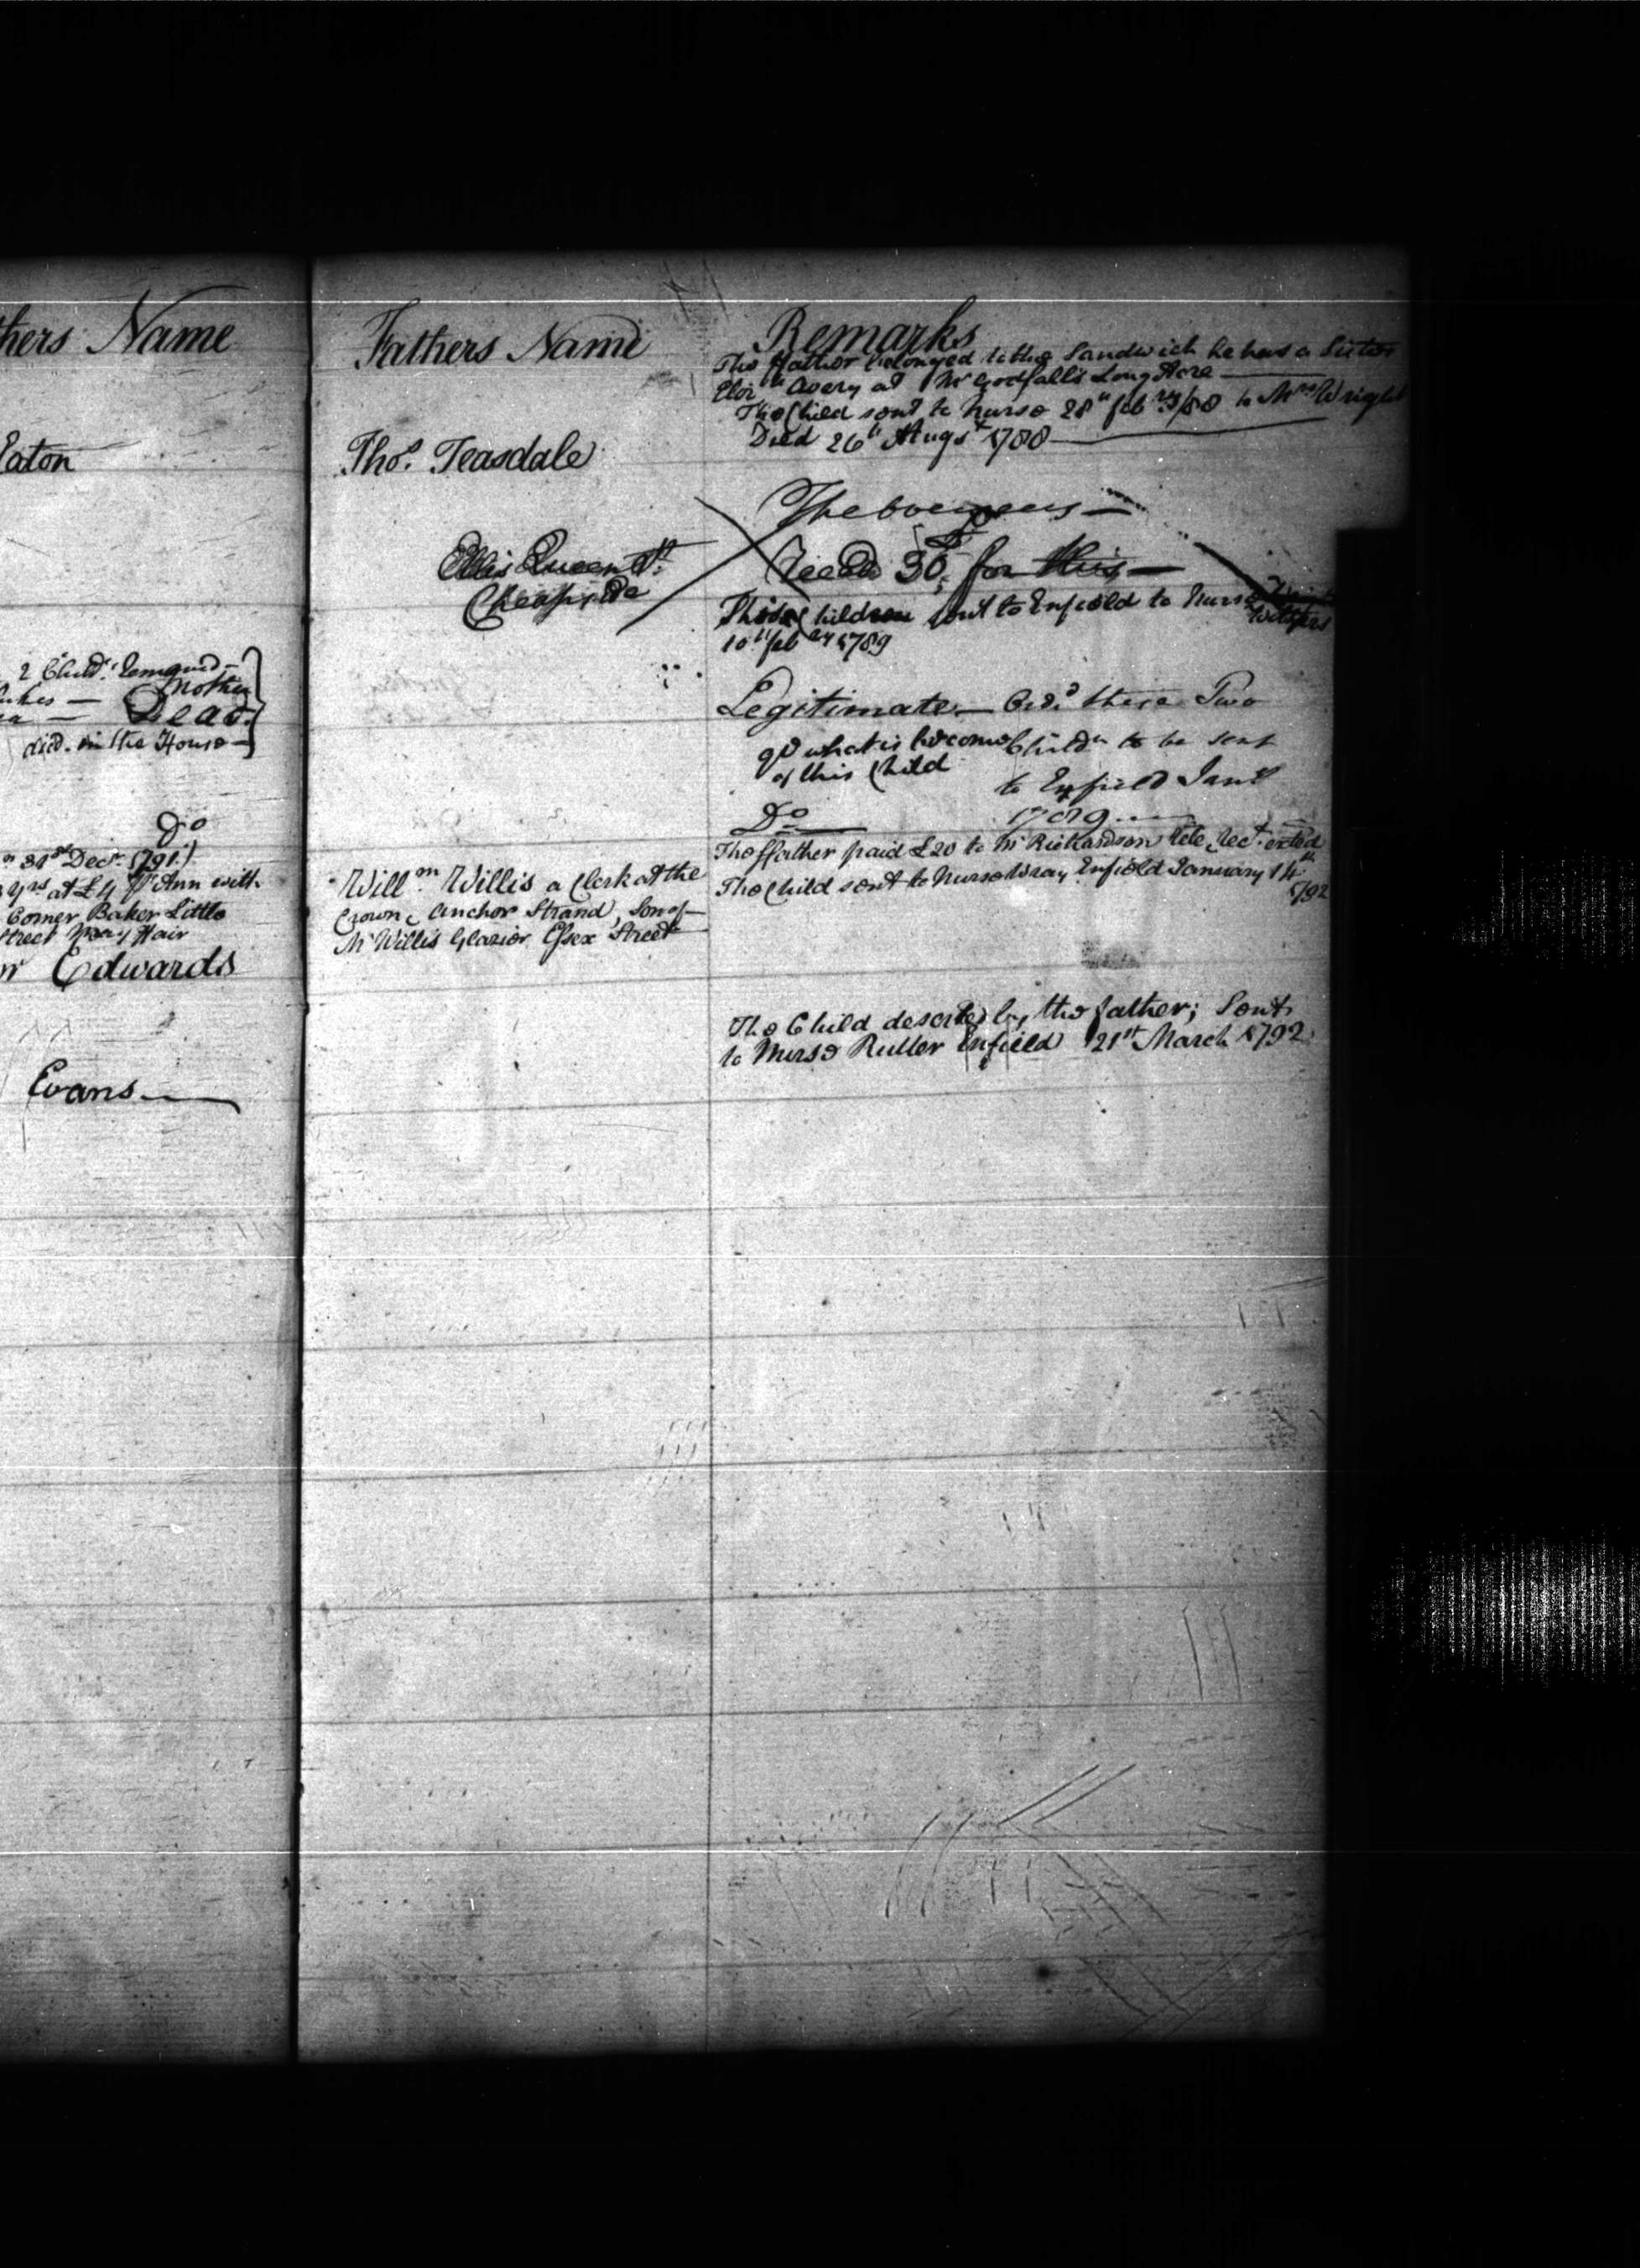 thers Name
Eaton
2 Child.n Remained
Mother
Dead.
died in the House
Do
31st Decr. 1791.)
yrs at £4 Pr Ann with
Corner Baker Little
Street May Fair
Edwards
Evans
Fathers Name
Thos. Teasdale
Ellis Queen St.
Cheapside
Willm Willis a Clerk at the
Crown & Anchor Strand, Son of
Mr Willis Glazier Essex Street
Remarks
The ffather belonged to the Sandwich he has a Sister
Elizth Avery at Mr Godfalls Long Acre
The Child sent to Nurse 28th febry /88 to Mrs Wright
Died 26th Augst 1788
Recd 30 for this
These Children sent to Enfield to Nurse
10th febry 1789
Legitimate Ord.d these Two
qd what is become Childn to be sent
of this Child
to Enfield Jany
Do 1789
The ffather paid £20 to Mr Richardson late
The Child sent to Nurse Wray Enfield January 14th
1792
The Child deserted by the father; Sent
to Nurse Rutter Enfield 21st March 1792